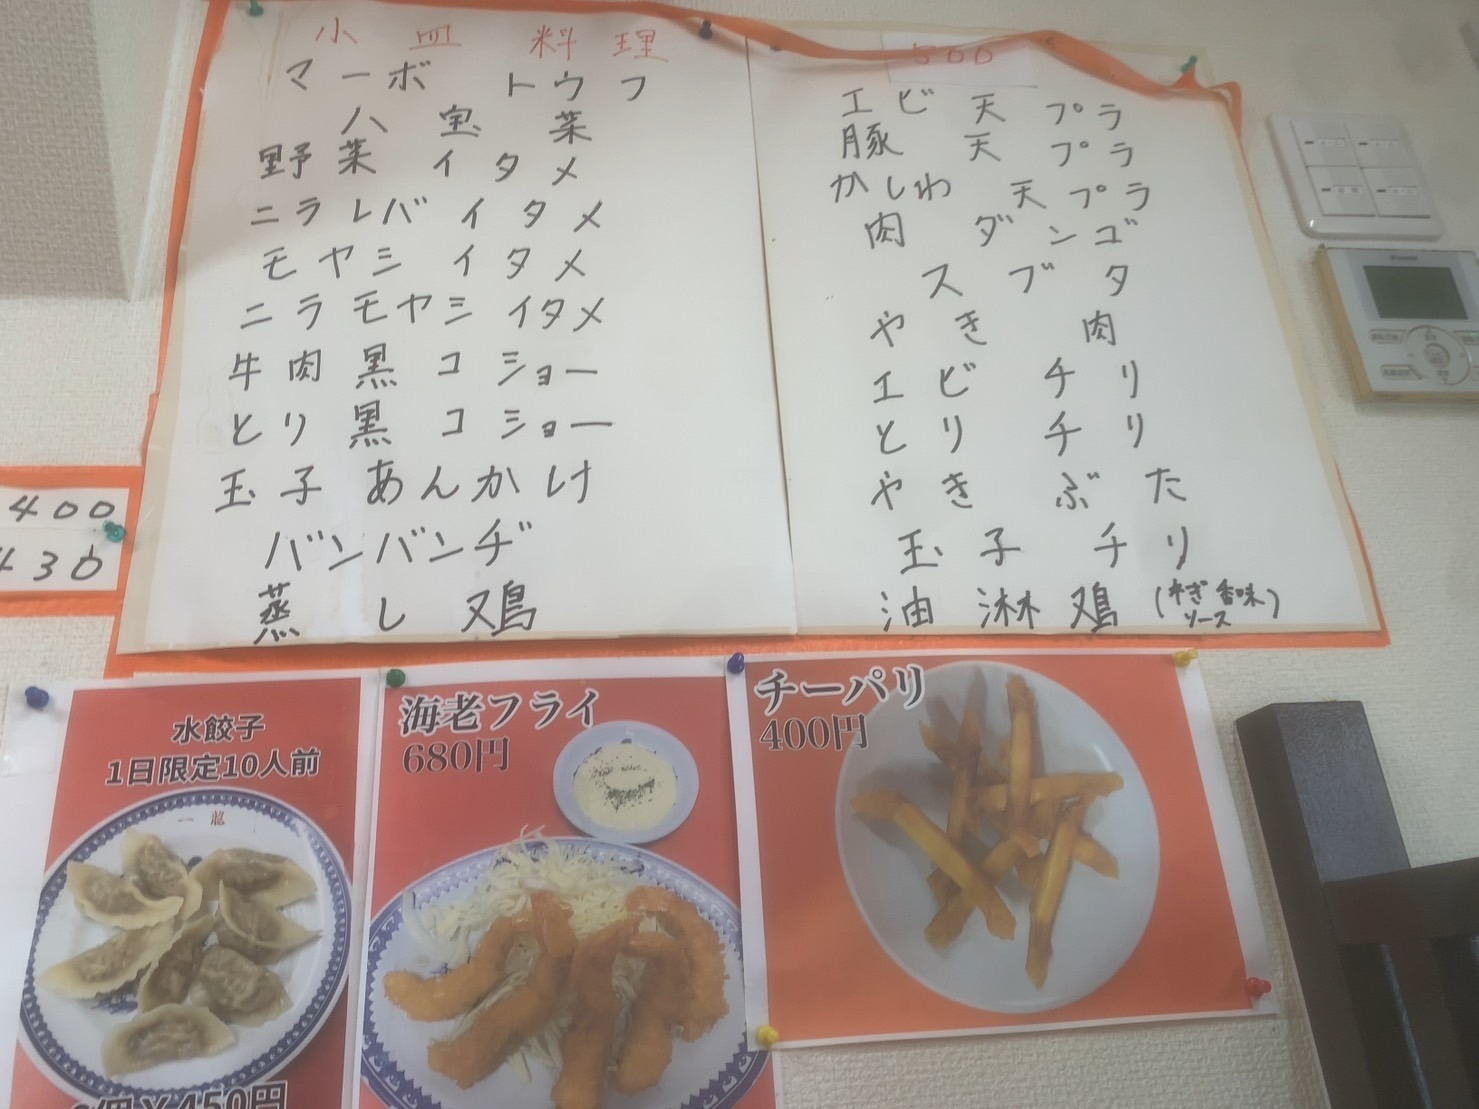 小皿料理
マーボトウフ
八宝菜
野菜イタメ
ニラレバイタメ
モヤシイタメ
ニラモヤシイタメ
牛肉黒コショー
とり黒コショー
玉子あんかけ
バンバンヂ
蒸し鶏
500
エビ天プラ
豚天プラ
かしわ天プラ
肉ダンゴ
スブタ
やき肉
エビチリ
とりチリ
やきぶた
玉子チリ
油淋鶏(ネギ香味ソース)
400
430
水餃子
1日限定10人前
6個¥450円
海老フライ
680円
チーパリ
400円